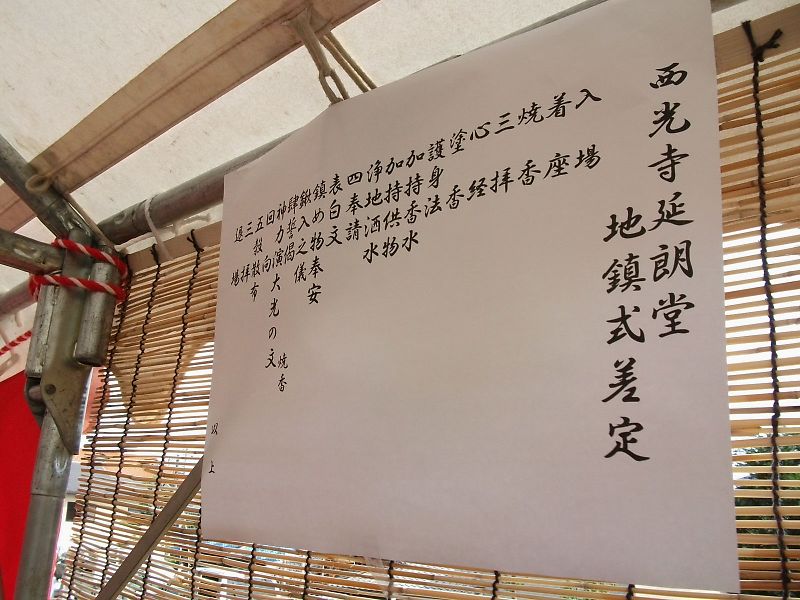 西光寺延朗堂
地鎮式差定
入場
着座
焼香
三拝
心経
塗香
護身法
加持香水
加持供物
浄地洒水
四奉請
表白文
鎮め物奉安
鍬入之儀
肆誓偈
神力演大光の文 焼香
回向
五穀散布
三拝
退場
以上